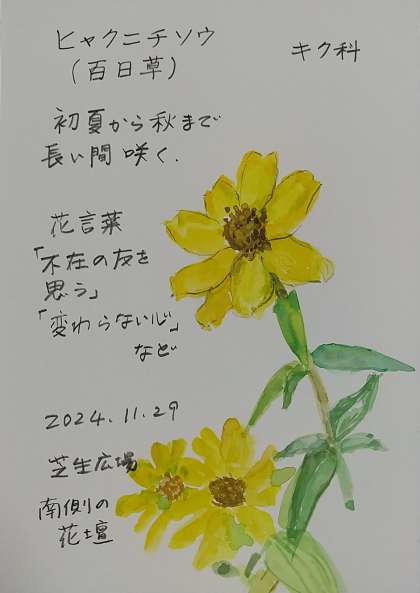 ヒャクニチソウ
(百日草)
キク科
初夏から秋まで
長い間咲く.
花言葉
「不在の友を
思う」
「変わらない心」
など
2024.11.29
芝生広場
南側の
花壇